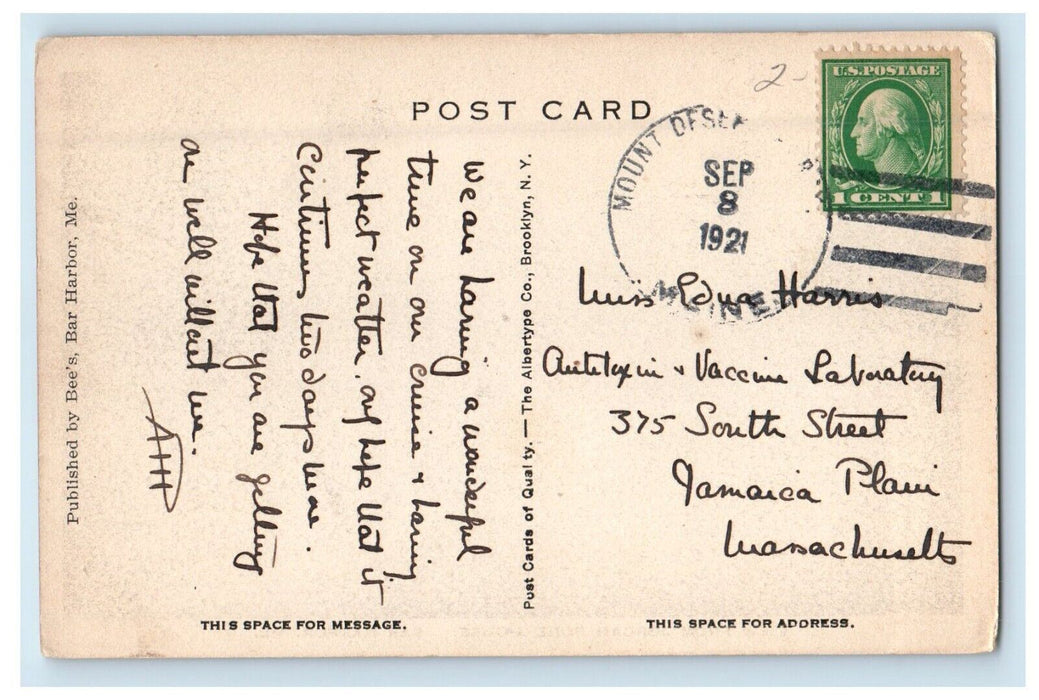 POST CARD
2-
U.S. POSTAGE
1 CENT 1
MOUNT DESERT
SEP
8
1921
MAINE
Published by Bee's, Bar Harbor, Me.
We are having a wonderful
time on our cruise & having
perfect weather. only hope that it
Continues two days more.
Hope that you are getting
on well without me.
AHH
THIS SPACE FOR MESSAGE.
Post Cards of Quality. — The Albertype Co., Brooklyn, N. Y.
Miss Edna Harris
Antitoxin & Vaccine Laboratory
375 South Street
Jamaica Plain
Massachusetts
THIS SPACE FOR ADDRESS.